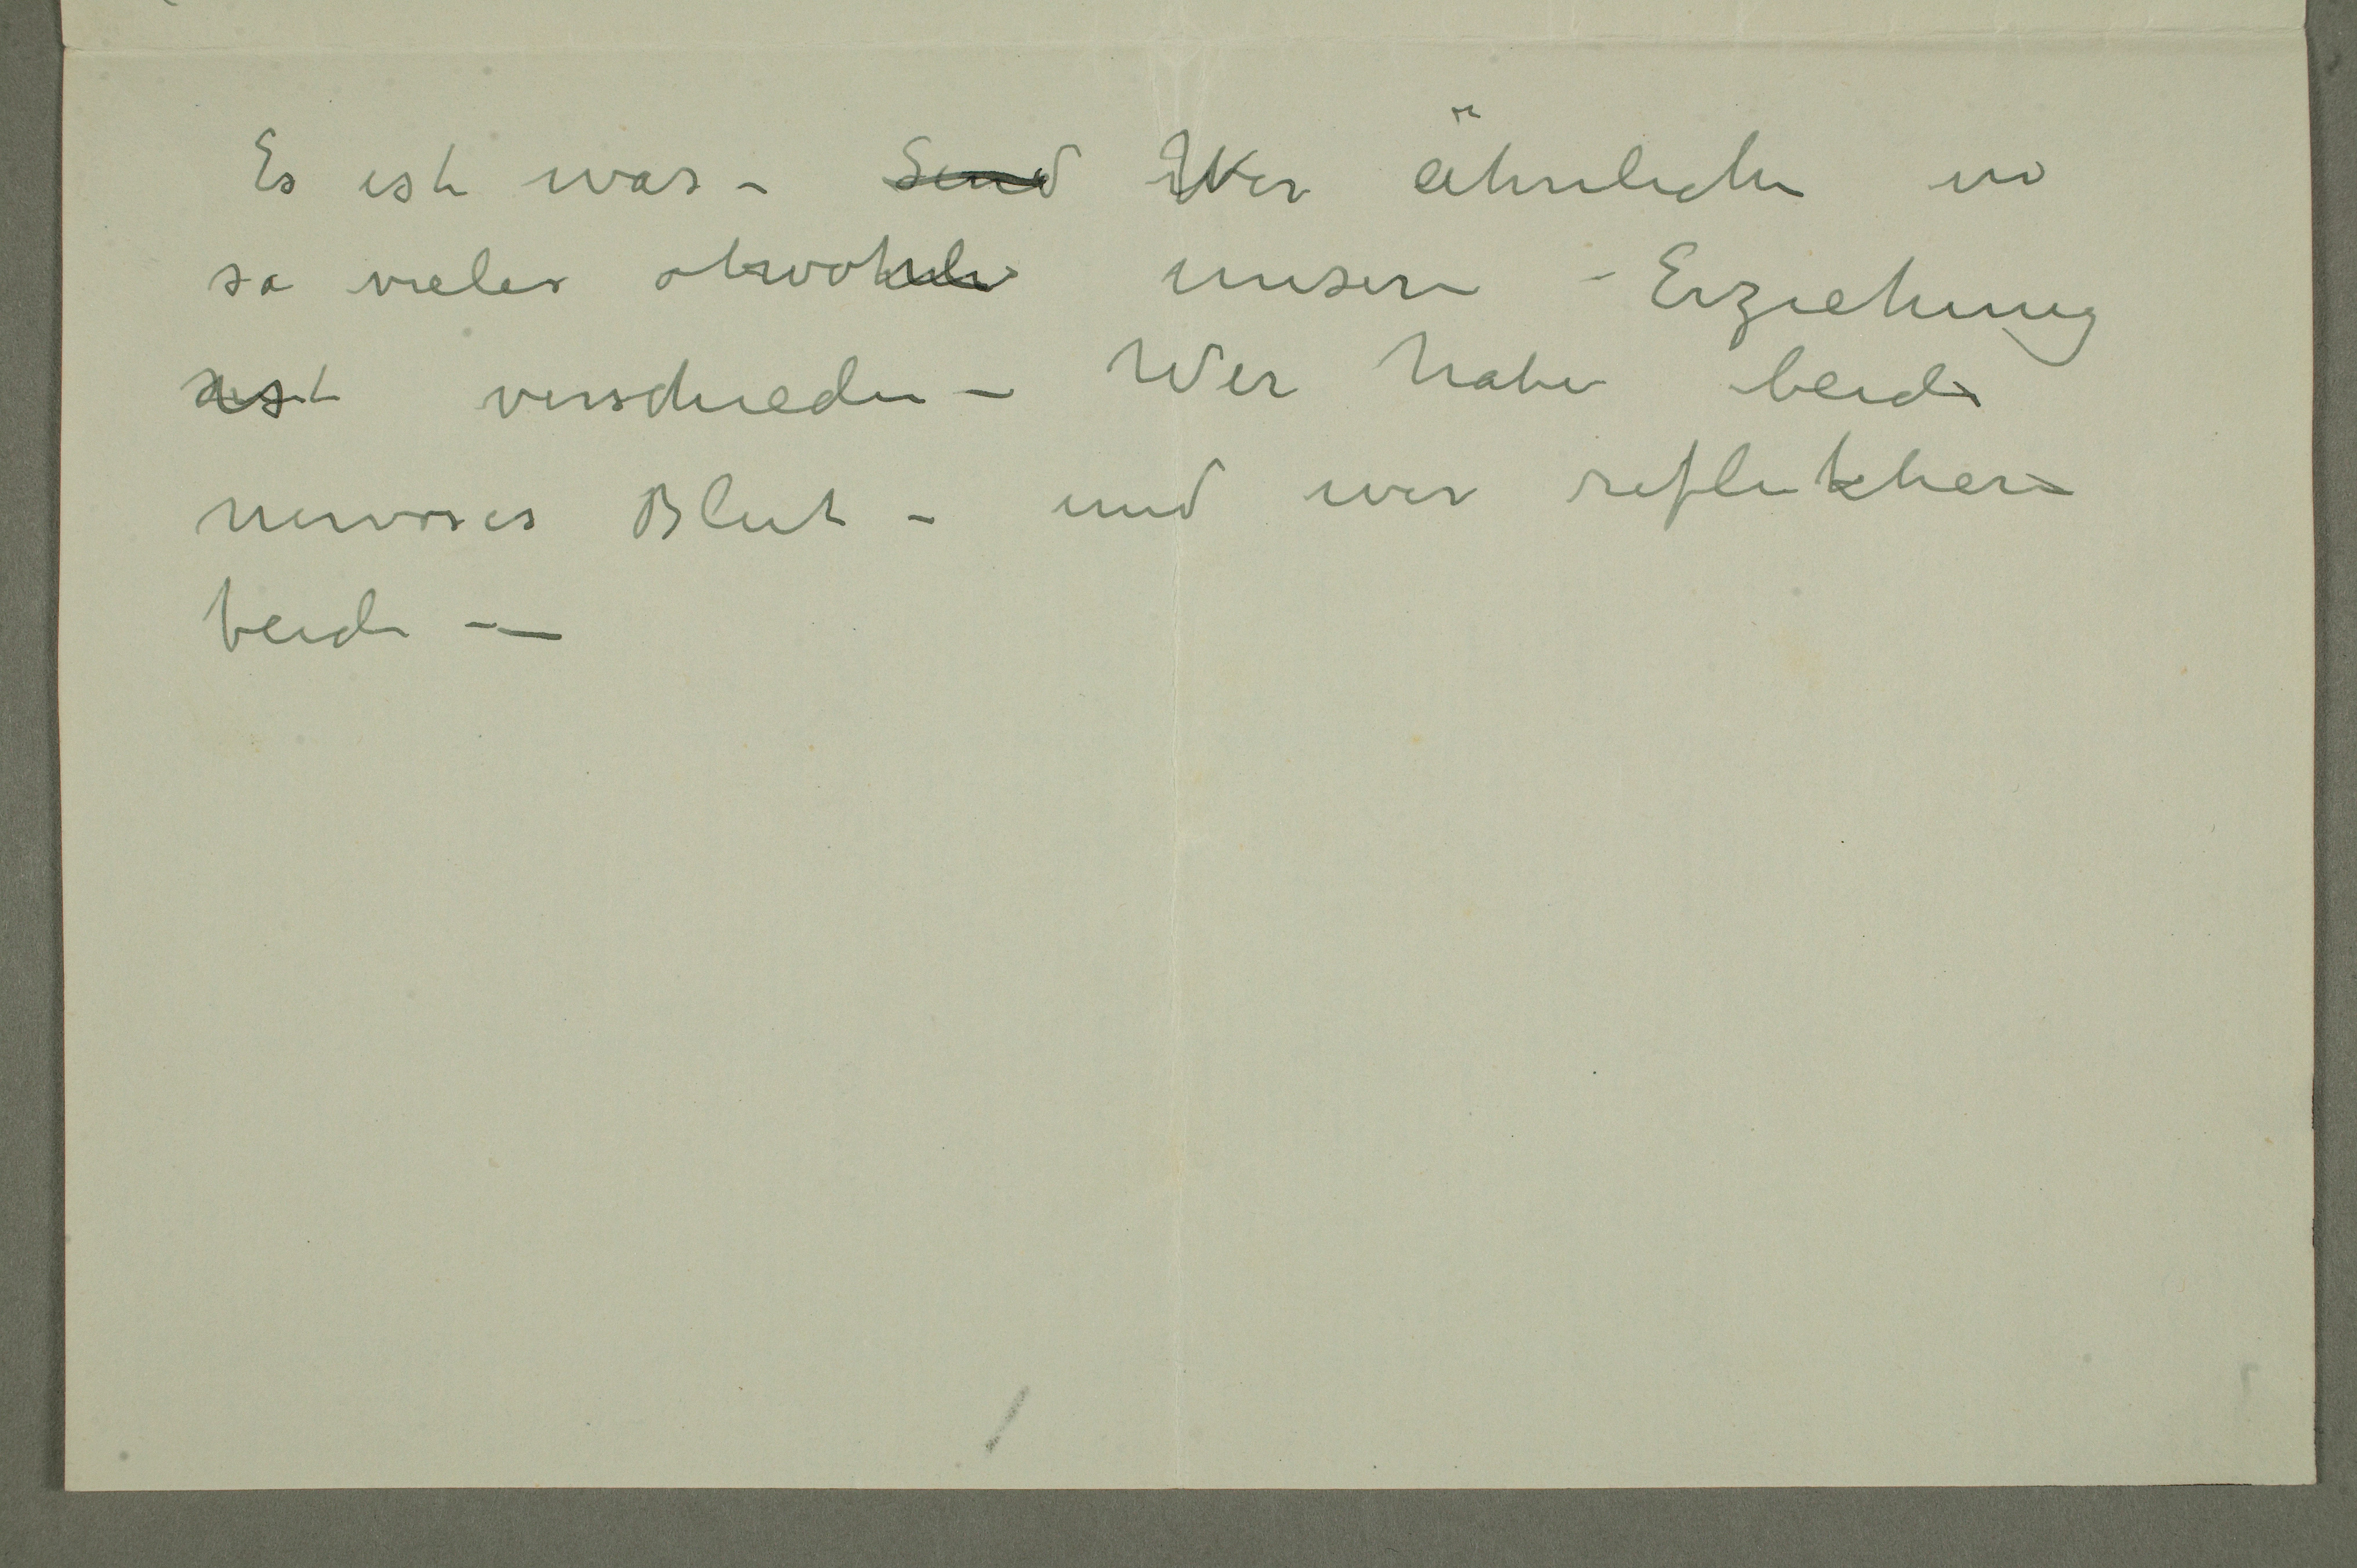 Es ist was – Sind Wir ähnlich in
so vieles obwohl unsere Erziehung
ist verschieden – Wir habe beide
nervoses Blut – und wir reflektiere
beide –—